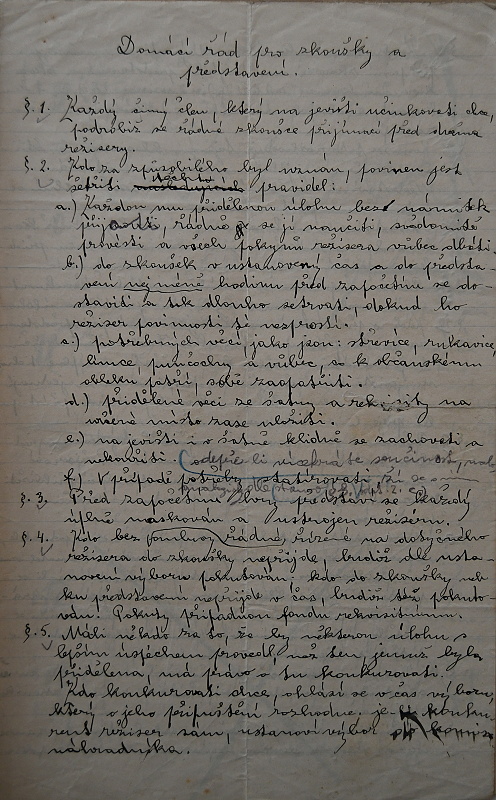 Domácí řád pro zkoušky a
představení.
§. 1. Každý činný člen, který na jevišti účinkovati chce,
podrobiž se řádné zkoušce přijímací před dvěma
režisery.
§. 2. Kdo za způsobilého byl uznán, povinen jest
šetřiti těchto následujících pravidel:
a.) Každou mu přidělenou úlohu bez námitek
přijmouti, řádně se jí naučiti, svědomitě
provésti a vůbec pokynů režisera vůbec dbáti.
b.) do zkoušek v ustanovený čas a do předsta-
vení nejméně hodinu před započetím se do-
staviti a tak dlouho setrvati, dokud ho
režiser povinnosti té nesprostí.
c.) potřebných věcí, jako jsou: střevíce, rukavice,
límce, punčochy a vůbec, co k občanskému
obleku patří, sobě zaopatřiti.
d.) přidělené věci ze šatny a rekvisity na
určené místo zase uložiti.
e.) na jevišti i v šatně klidně se zachovati a
nekouřiti.
f.) V případě potřeby statirovati
§. 3. Před započetím hry představí se každý
úplně maskován a ustrojen režisérům.
§. 4. Kdo bez omluvy řádné,
režisera do zkoušky nepřijde, budiž dle usta-
novení výboru pokutován: kdo do zkoušky neb
ku představení nepřijde v čas, budiž též pokuto-
ván. Pokuty připadnou fondu rekvisitnímu.
§. 5. Máli někdo za to, že by některou úlohu s
lepším úspěchem provedl, než ten, jemuž byla
přidělena, má právo o tu konkurovati.
Kdo konkurovati chce, ohlásí se v čas výboru,
který o jeho připuštění rozhodne. je-li konkur-
rent režiser sám, ustanoví výbor do komise
náhradníka.